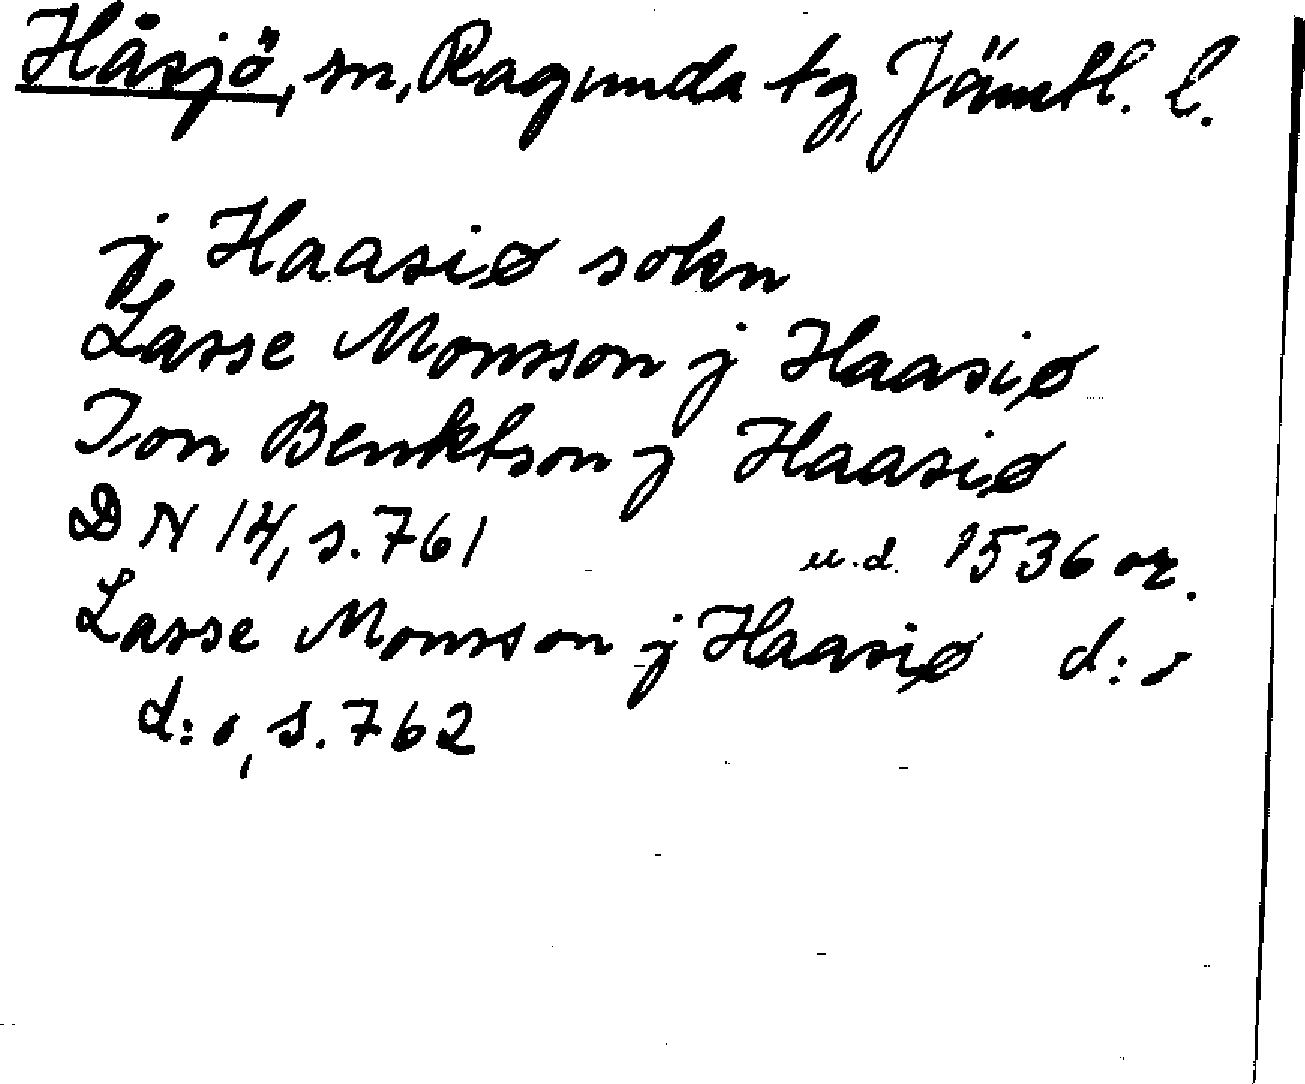 Håsjö, sn, Ragunda tg, Jämtl. l.
j Haasiø sokn
Lasse Monsson j Haasiø
Ion Benktson j Haasiø
DN 14, s. 761 u.d. 1536 or.
Lasse Monsson j Haasiø d:o
d:o, s. 762